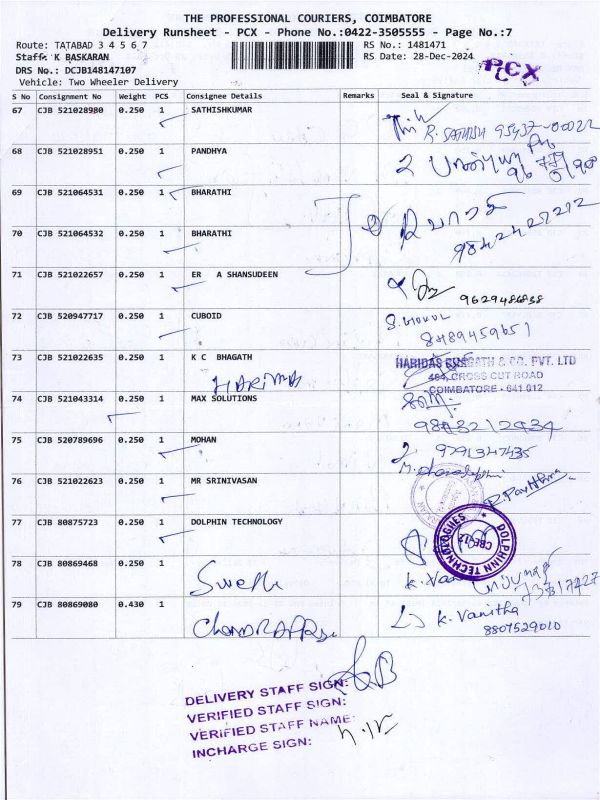 THE PROFESSIONAL COURIERS, COIMBATORE
Delivery Runsheet - PCX - Phone No.:0422-3505555 - Page No.:7
Route: TATABAD 3 4 5 6 7 RS No.: 1481471
Staff: K BASKARAN RS Date: 28-Dec-2024
DRS No.: DCJB148147107
Vehicle: Two Wheeler Delivery
PCX
S No Consignment No Weight PCS Consignee Details Remarks Seal & Signature
67 CJB 521028980 0.250 1 SATHISHKUMAR R. SATHISH 95437-00022
68 CJB 521028951 0.250 1 PANDHYA
69 CJB 521064531 0.250 1 BHARATHI
70 CJB 521064532 0.250 1 BHARATHI
71 CJB 521022657 0.250 1 ER A SHANSUDEEN
72 CJB 520947717 0.250 1 CUBOID S. GOKUL
8489459651
73 CJB 521022635 0.250 1 K C BHAGATH HARIDAS BHAGATH & CO. PVT. LTD
464, CROSS CUT ROAD
COIMBATORE - 641 012
74 CJB 521043314 0.250 1 MAX SOLUTIONS
75 CJB 520789696 0.250 1 MOHAN 9791347435
76 CJB 521022623 0.250 1 MR SRINIVASAN
77 CJB 80875723 0.250 1 DOLPHIN TECHNOLOGY DOLPHINN TECHNOLOGIES CBE-12
78 CJB 80869468 0.250 1
79 CJB 80869080 0.430 1 K. Vanitha
8807529010
DELIVERY STAFF SIGN:
VERIFIED STAFF SIGN:
VERIFIED STAFF NAME:
INCHARGE SIGN: